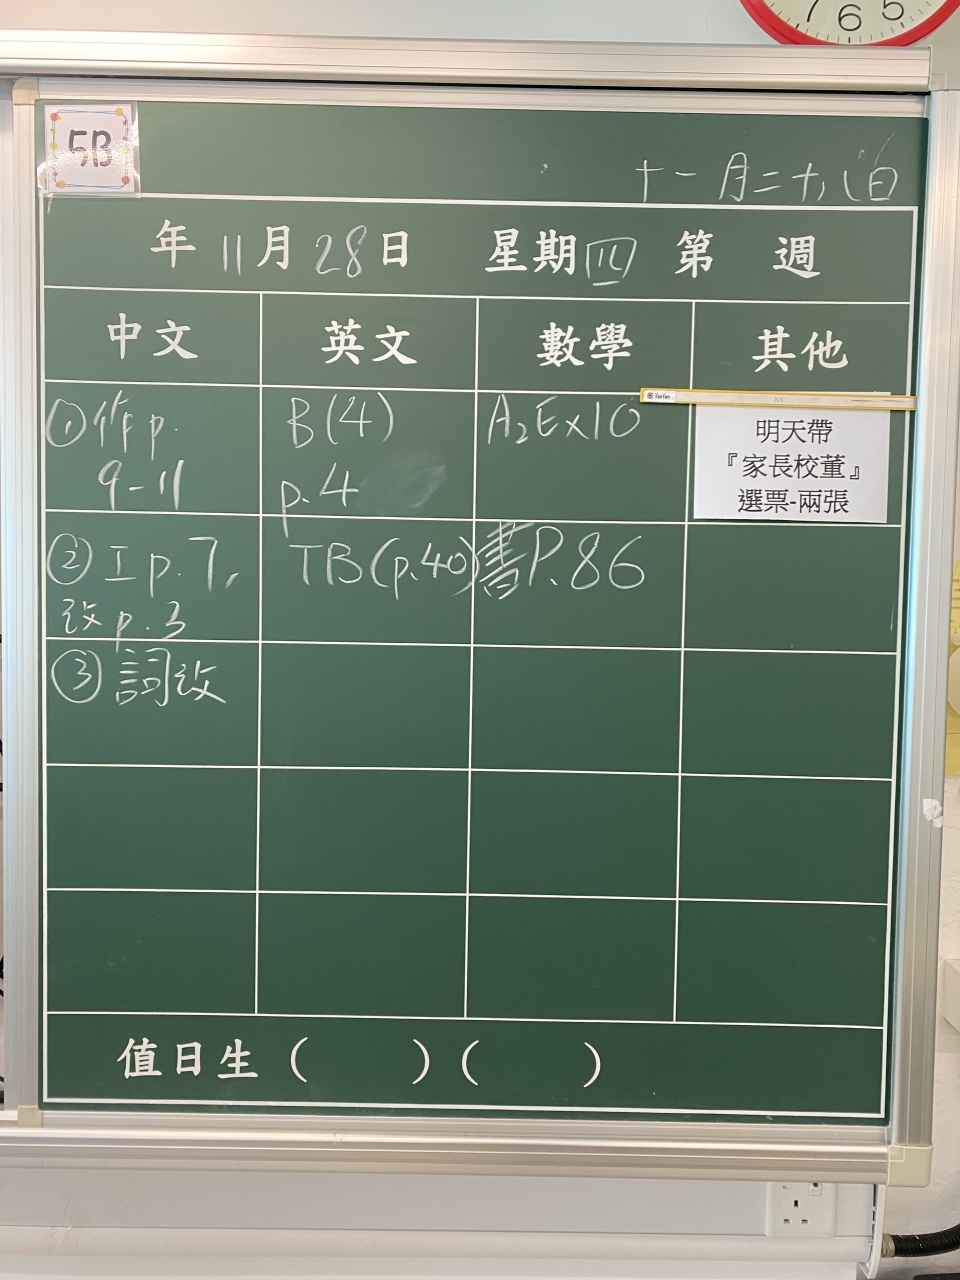 7 6 5
5B
十一月二十八日
年 11 月 28 日 星期四 第 週
中文 英文 數學 其他
① 作 p.
9-11
② 工 p.7,
改 p.3
③ 詞改
B(4)
p.4
TB(p.40)
A₂Ex10
書P.86
明天帶
『家長校董』
選票-兩張
值日生 ( ) ( )